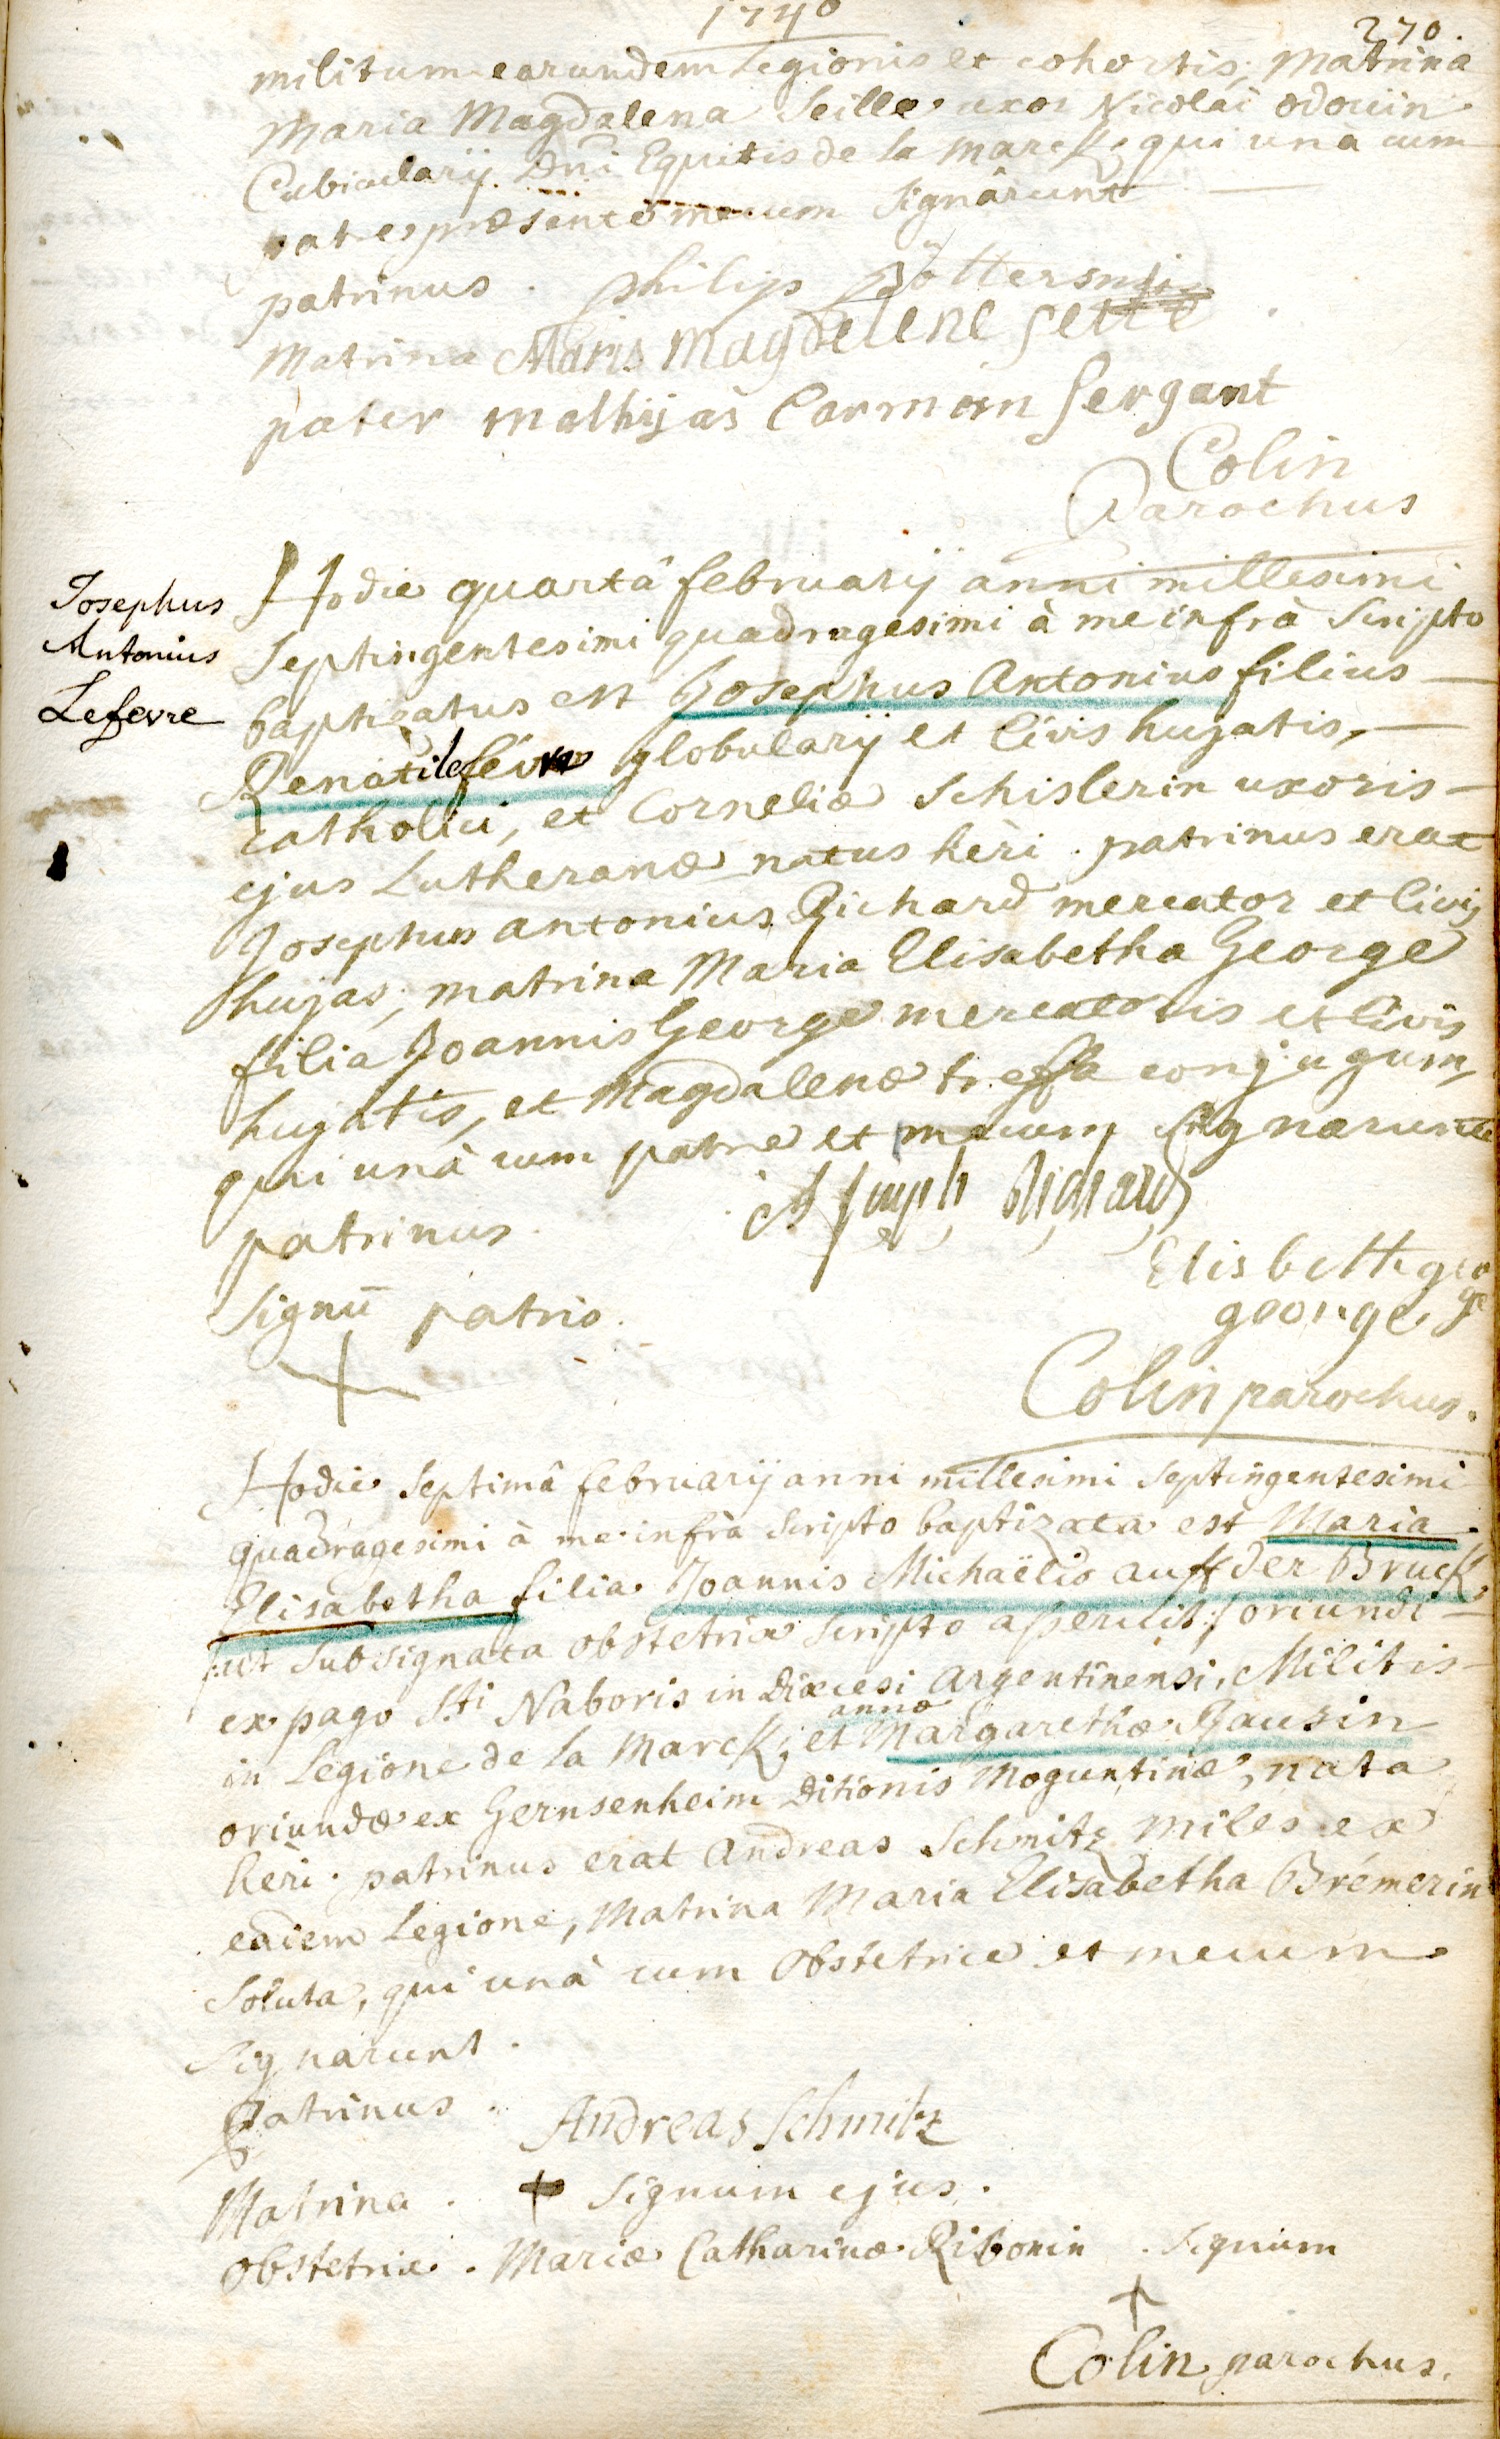 1740
270.
militum earundem Legionis et cohortis; Matrina
Maria Magdalena Seille uxor Nicolai odouin
Cubicularij Dni Equitis de la marck; qui una cum
patre præsente mecum signârunt
patrinus . philips
Matrina Maria Magdelene
pater mathijas Carmøin sergant
Colin
Parochus
Josephus
Antonius
Lefevre
Hodie quartâ februarij anni millesimi
septingentesimi quadragesimi à me infrà scripto
baptizatus est Josephus Antonius filius
Renati lefevre globularij et Civis hujatis,
catholici, et Corneliæ Schislerin uxoris
ejus Lutheranæ natus heri . patrinus erat
Josephus antonius Richard mercator et Civis
hujas; matrina Maria Elisabetha George
filia Joannis George mercatoris et Civis
hujatis, et Magdalenæ treffa conjugum,
qui unà cum patre et mecum signarunt
patrinus Joseph Richard
Elisbettegeo
george, ge
signū patris .
Colin parochus.
Hodie septimâ februarij anni millesimi septingentesimi
quadragesimi à me infrà scripto baptizata est Maria
Elisabetha filia Joannis Michaëlis auff der Bruck
/ut subsignata obstetrix scripto aperuit:/ oriundi
ex pago Sti Naboris in Diœcesi argentinensi, Militis
in Legione de la Marck; et annæ Margarethæ Gausin
oriundæ ex Gernsenheim Ditionis Moguntinæ, nata
hèri . patrinus erat Andreas Schmitz miles ex
eadem Legione, Matrina Maria Elisabetha Brémerin
soluta, qui unà cum obstetrice et mecum
signarunt .
Patrinus . Andreas Schmitz
Matrina . + signum ejus .
obstetrix . Mariæ Catharinæ Ribonin . signum
+
Colin parochus.